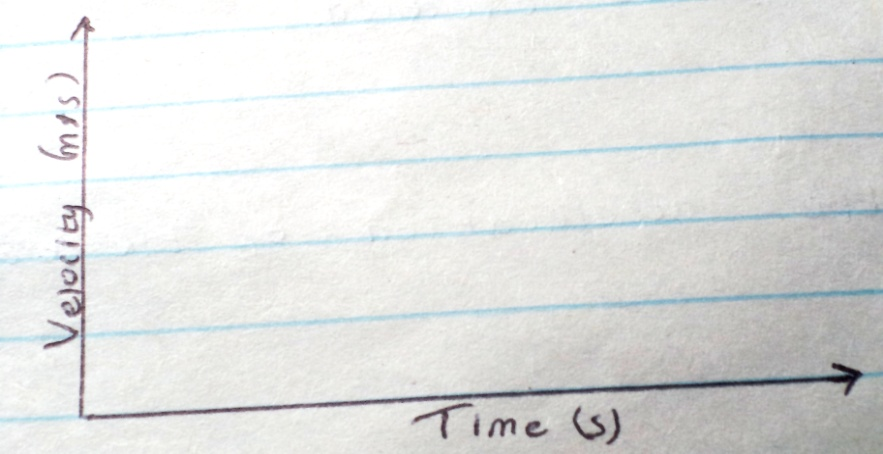 Velocity (m/s)
Time (s)